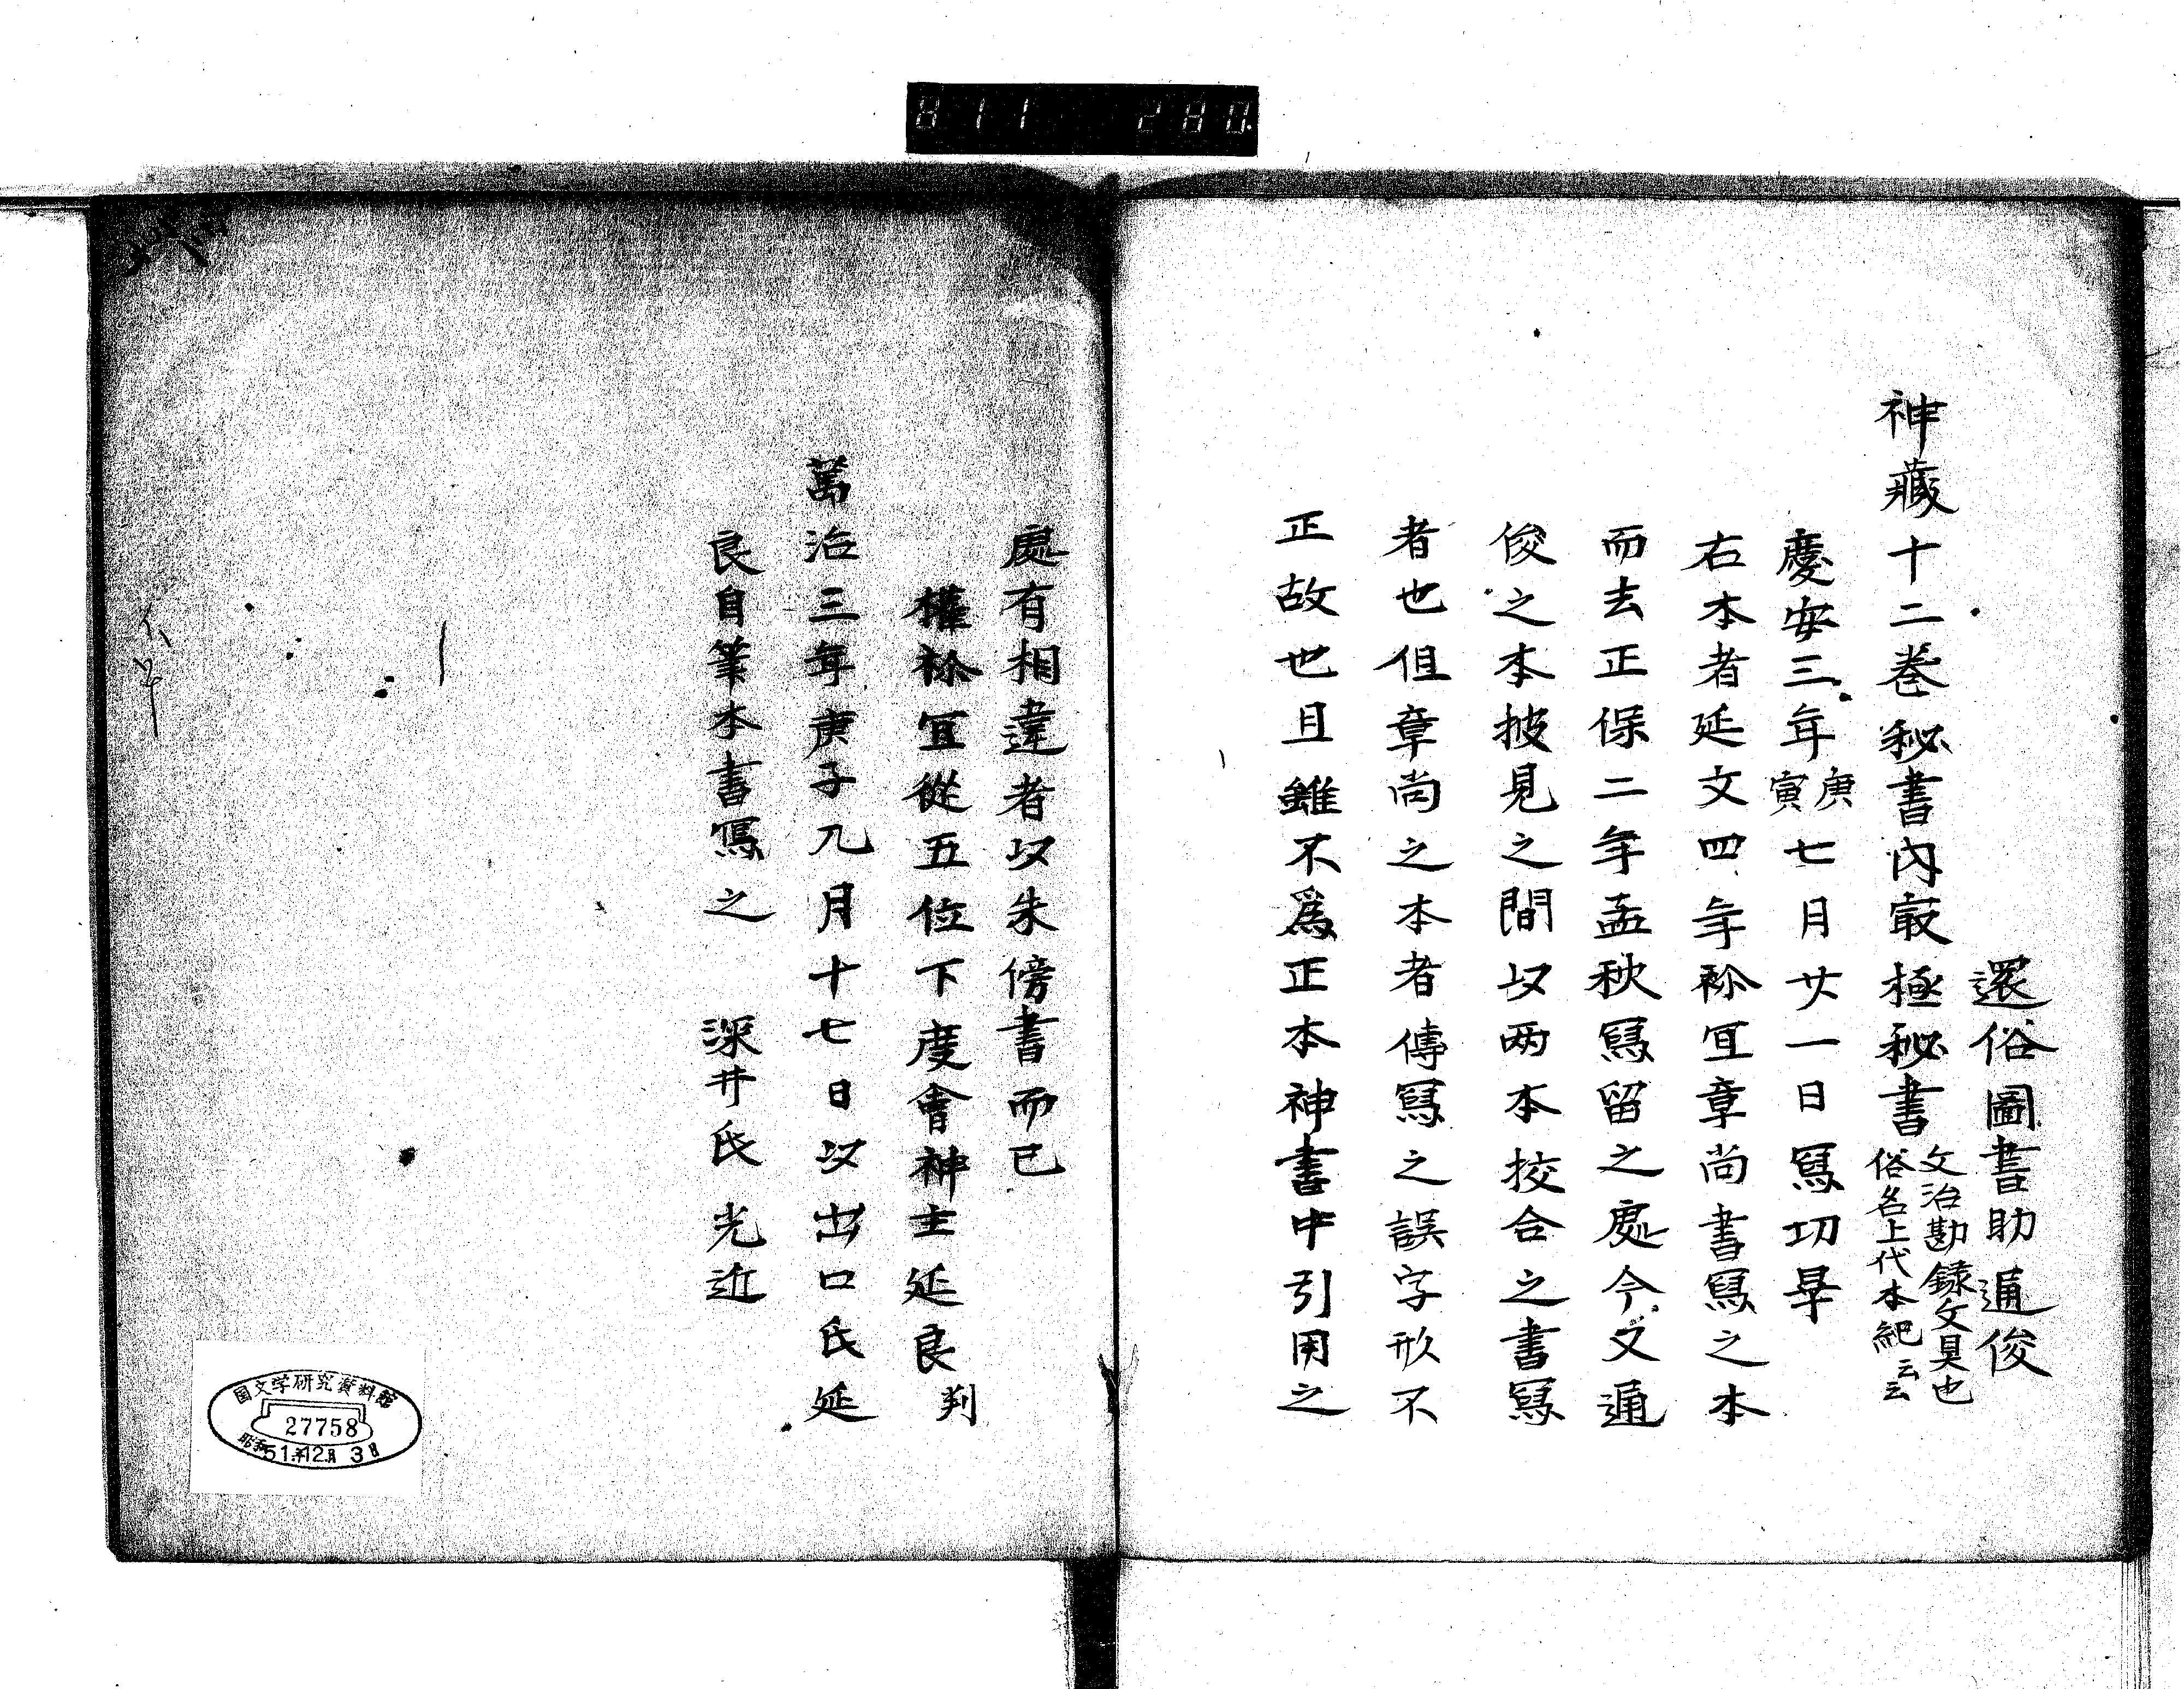 811 280
還俗圖書助通俊
神藏十二卷秘書内㝡極秘書 文治勘録文具也
俗名上代本紀云云
慶安三年庚寅七月廿一日寫功畢
右本者延文四年祢宜章尚書寫之本
而去正保二年孟秋寫留之處今又通
俊之本披見之間以两本挍合之書寫
者也但章尚之本者傳寫之誤字形不
正故也且雖不爲正本神書中引用之
處有相違者以朱傍書而已
權祢宜從五位下度會神主延良 判
萬治三年庚子九月十七日以出口氏延
良自筆本書寫之 深井氏光近
国文学研究資料館
27758
昭和51年12月3日